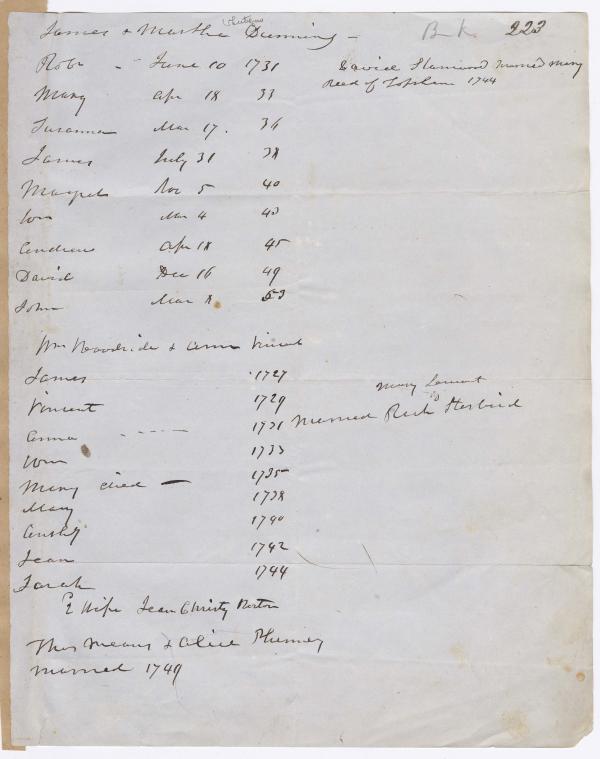 B.k. 223
James & Martha Dunning —
Robt June 10 1731
David Stanwood married Mary
Reed of Topsham 1744
Mary Apr 18 33
Susanna Mar 17. 36
James July 31 38
Margret Nov 5 40
Wm Mar 4 43
Andrew Apr 18 45
David Dec 16 49
John Mar 8 53
Wm Woodside & Anna Vincent
James 1727
Vincent 1729
Anna 1731 Married Richd
Mary
Wm 1733
Mary died — 1735
Mary 1738
Anthy 1740
Jean 1742
Sarah 1744
2 Wife Jean Christy Boston
Thos Means & Alice Phinney
married 1749